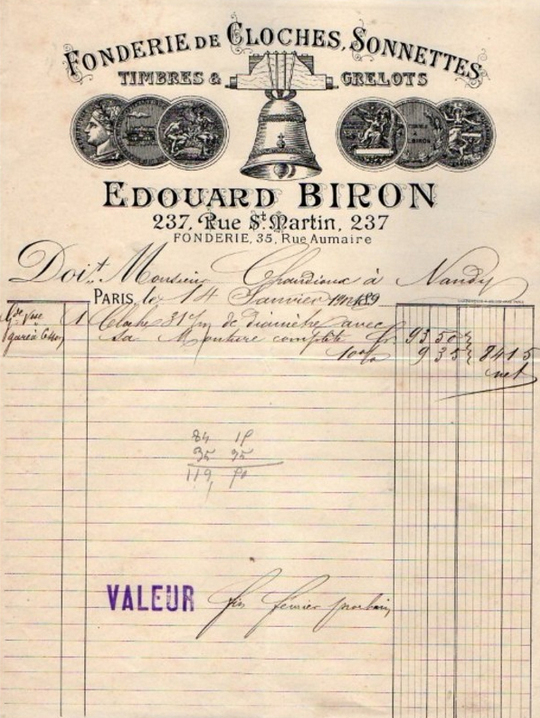 FONDERIE DE CLOCHES, SONNETTES
TIMBRES & GRELOTS
EDOUARD BIRON
237, Rue St. Martin, 237
FONDERIE, 35, Rue Aumaire
Doit Monsieur Chandioux à Nandy
PARIS, le 14 Janvier 1889
Gde Vse 1 Cloche 31 c/m de diamètre avec
gare à sa Monture complète fr 93 50
10% 9 35 84 15
net
84 15
35 75
119 90
VALEUR fin février prochain